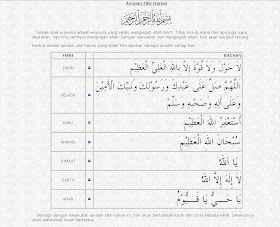 Amalan Zikir Harian
بسم الله الرحمن الرحيم
Sebaik-baik manusia adalah manusia yang selalu mengingati Allah SWT. Tidak kira di mana dan apa juga yang
dilakukan, hati kita sentiasa mengingati Allah. Dengan menyebut dan mengingati Allah, hati akan menjadi tenang.
Berikut adalah amalan zikir harian yang boleh kita lakukan sebagai amalan setiap hari.
HARI BACAAN
ISNIN لَا حَوْلَ وَلَا قُوَّةَ إِلَّا بِاللهِ الْعَلِيِّ الْعَظِيْمِ
SELASA اَللّٰهُمَّ صَلِّ عَلَى عَبْدِكَ وَرَسُوْلِكَ وَنَبِيِّكَ الْأَمِيْنِ
وَعَلَى آلِهِ وَصَحْبِهِ وَسَلِّمْ
RABU أَسْتَغْفِرُ اللهَ الْعَظِيْمَ
KHAMIS سُبْحَانَ اللهِ الْعَظِيْمِ
JUMAAT يَا اَللهُ
SABTU لَا إِلٰهَ إِلَّا اللهُ
AHAD يَا حَيُّ يَا قَيُّوْمُ
Semoga dengan melakukan amalan zikir harian ini, hati akan bertambah kasih dan cinta kepada Allah. Seterusnya
akan melahirkan insan bertakwa.